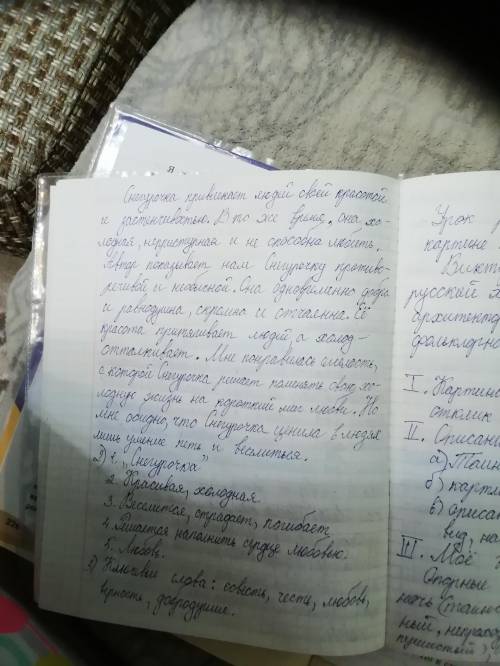 я
Снегурочка привлекает людей своей красотой
и застенчивостью. В то же время, она хо-
лодная, неприступная и не способна любить.
Автор показывает нам Снегурочку противо-
речивой и необычной. Она одновременно добра
и равнодушна, скромна и отчаянна. Её
красота притягивает людей, а холод-
отталкивает. Мне понравилась смелость,
с которой Снегурочка решает поменять свою хо-
лодную жизнь на короткий миг любви. Но
мне обидно, что Снегурочка ценила в людях
лишь умение петь и веселиться.
1. "Снегурочка"
2. Красивая, холодная
3. Веселится, страдает, погибает
4. Решается наполнить сердце любовью.
5. Любовь.
Ключевые слова: совесть, честь, любовь,
верность, добродушие.
Урок
картине
Викт
русский х
архитектор
фольклорно
I. Картина
отклик
II. Описани
а) Толи
б) карти
в) описан
вид, на
III. Моё
Опорные
ный, непрасо
пушистый